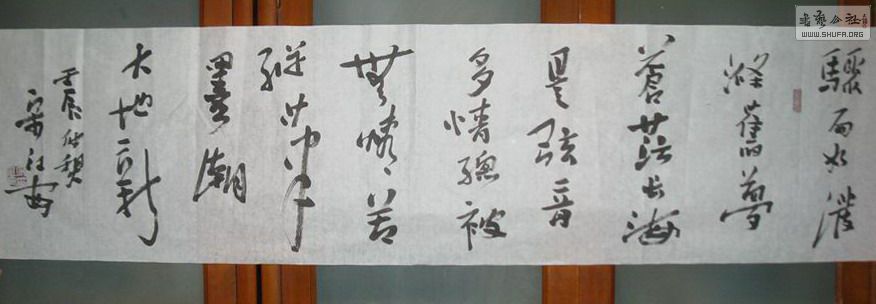 驟雨如潑
滌舊夢
蒼茫長海
是弦音
多情總被
無情苦
縱筆
墨潮
大地新
壬辰仲秋
書藝公社
WWW.SHUFA.ORG